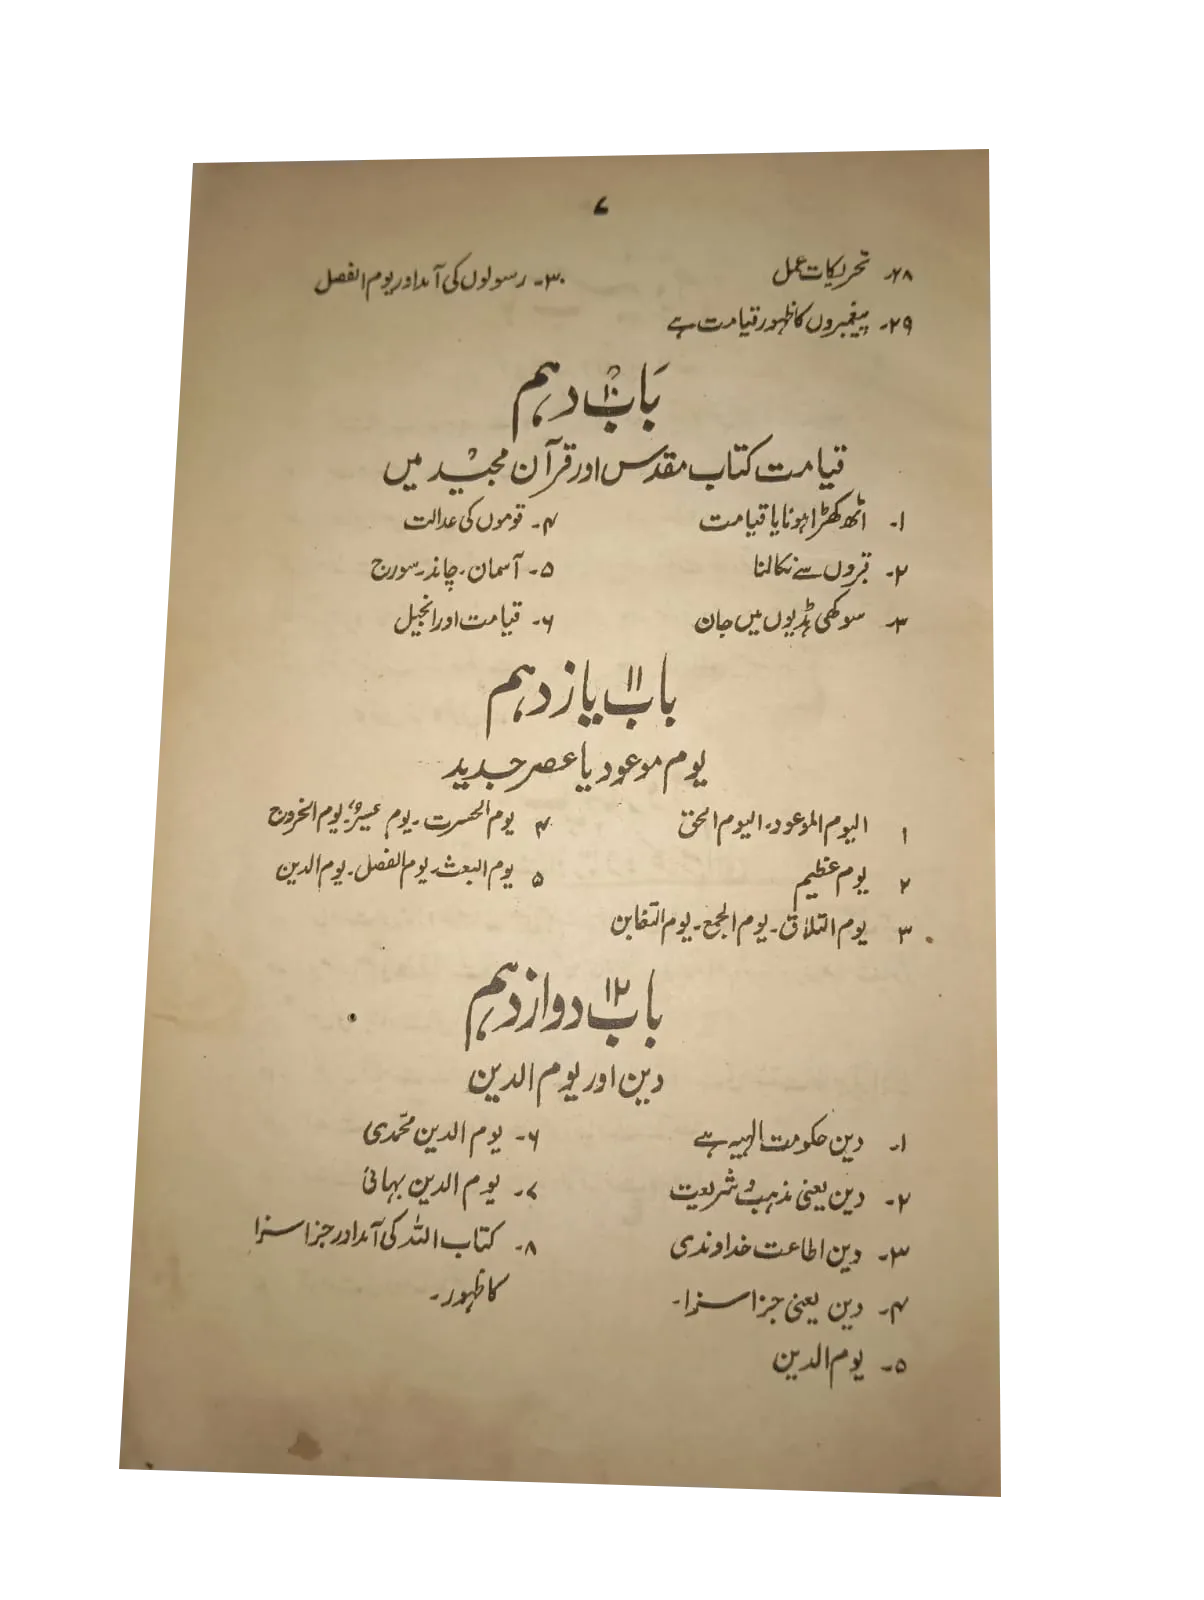 ۷
۲۸۔ تحریکات عمل
۲۹۔ پیغمبروں کا ظہور قیامت ہے
۳۰۔ رسولوں کی آمد اور یوم الفصل
باب ۱۰ دہم
قیامت کتاب مقدس اور قرآن مجید میں
۱۔ اٹھ کھڑا ہونا یا قیامت
۲۔ قبروں سے نکالنا
۳۔ سوکھی ہڈیوں میں جان
۴۔ قوموں کی عدالت
۵۔ آسمان۔ چاند۔ سورج
۶۔ قیامت اور انجیل
باب ۱۱ یازدہم
یوم موعود یا عصر جدید
۱ الیوم الموعود۔ الیوم الحق
۲ یوم عظیم
۳ یوم التلاق۔ یوم الجمع۔ یوم التغابن
۴ یوم الحسرت۔ یوم عسیر۔ یوم الخروج
۵ یوم البعث۔ یوم الفصل۔ یوم الدین
باب ۱۲ دوازدہم
دین اور یوم الدین
۱۔ دین حکومت الہیہ ہے
۲۔ دین یعنی مذہب و شریعت
۳۔ دین اطاعت خداوندی
۴۔ دین یعنی جزا سزا۔
۵۔ یوم الدین
۶۔ یوم الدین محمّدی
۷۔ یوم الدین بہائی
۸۔ کتاب اللہ کی آمد اور جزا سزا
کا ظہور۔